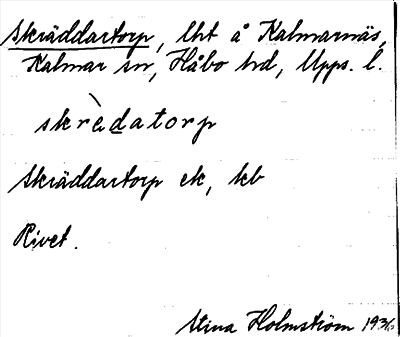 Skräddartorp, lht å Kalmarnäs,
Kalmar sn, Håbo hd, Upps. l.
skrèdatorp
Skräddartorp ek, kb
Rivet.
Stina Holmström 1936